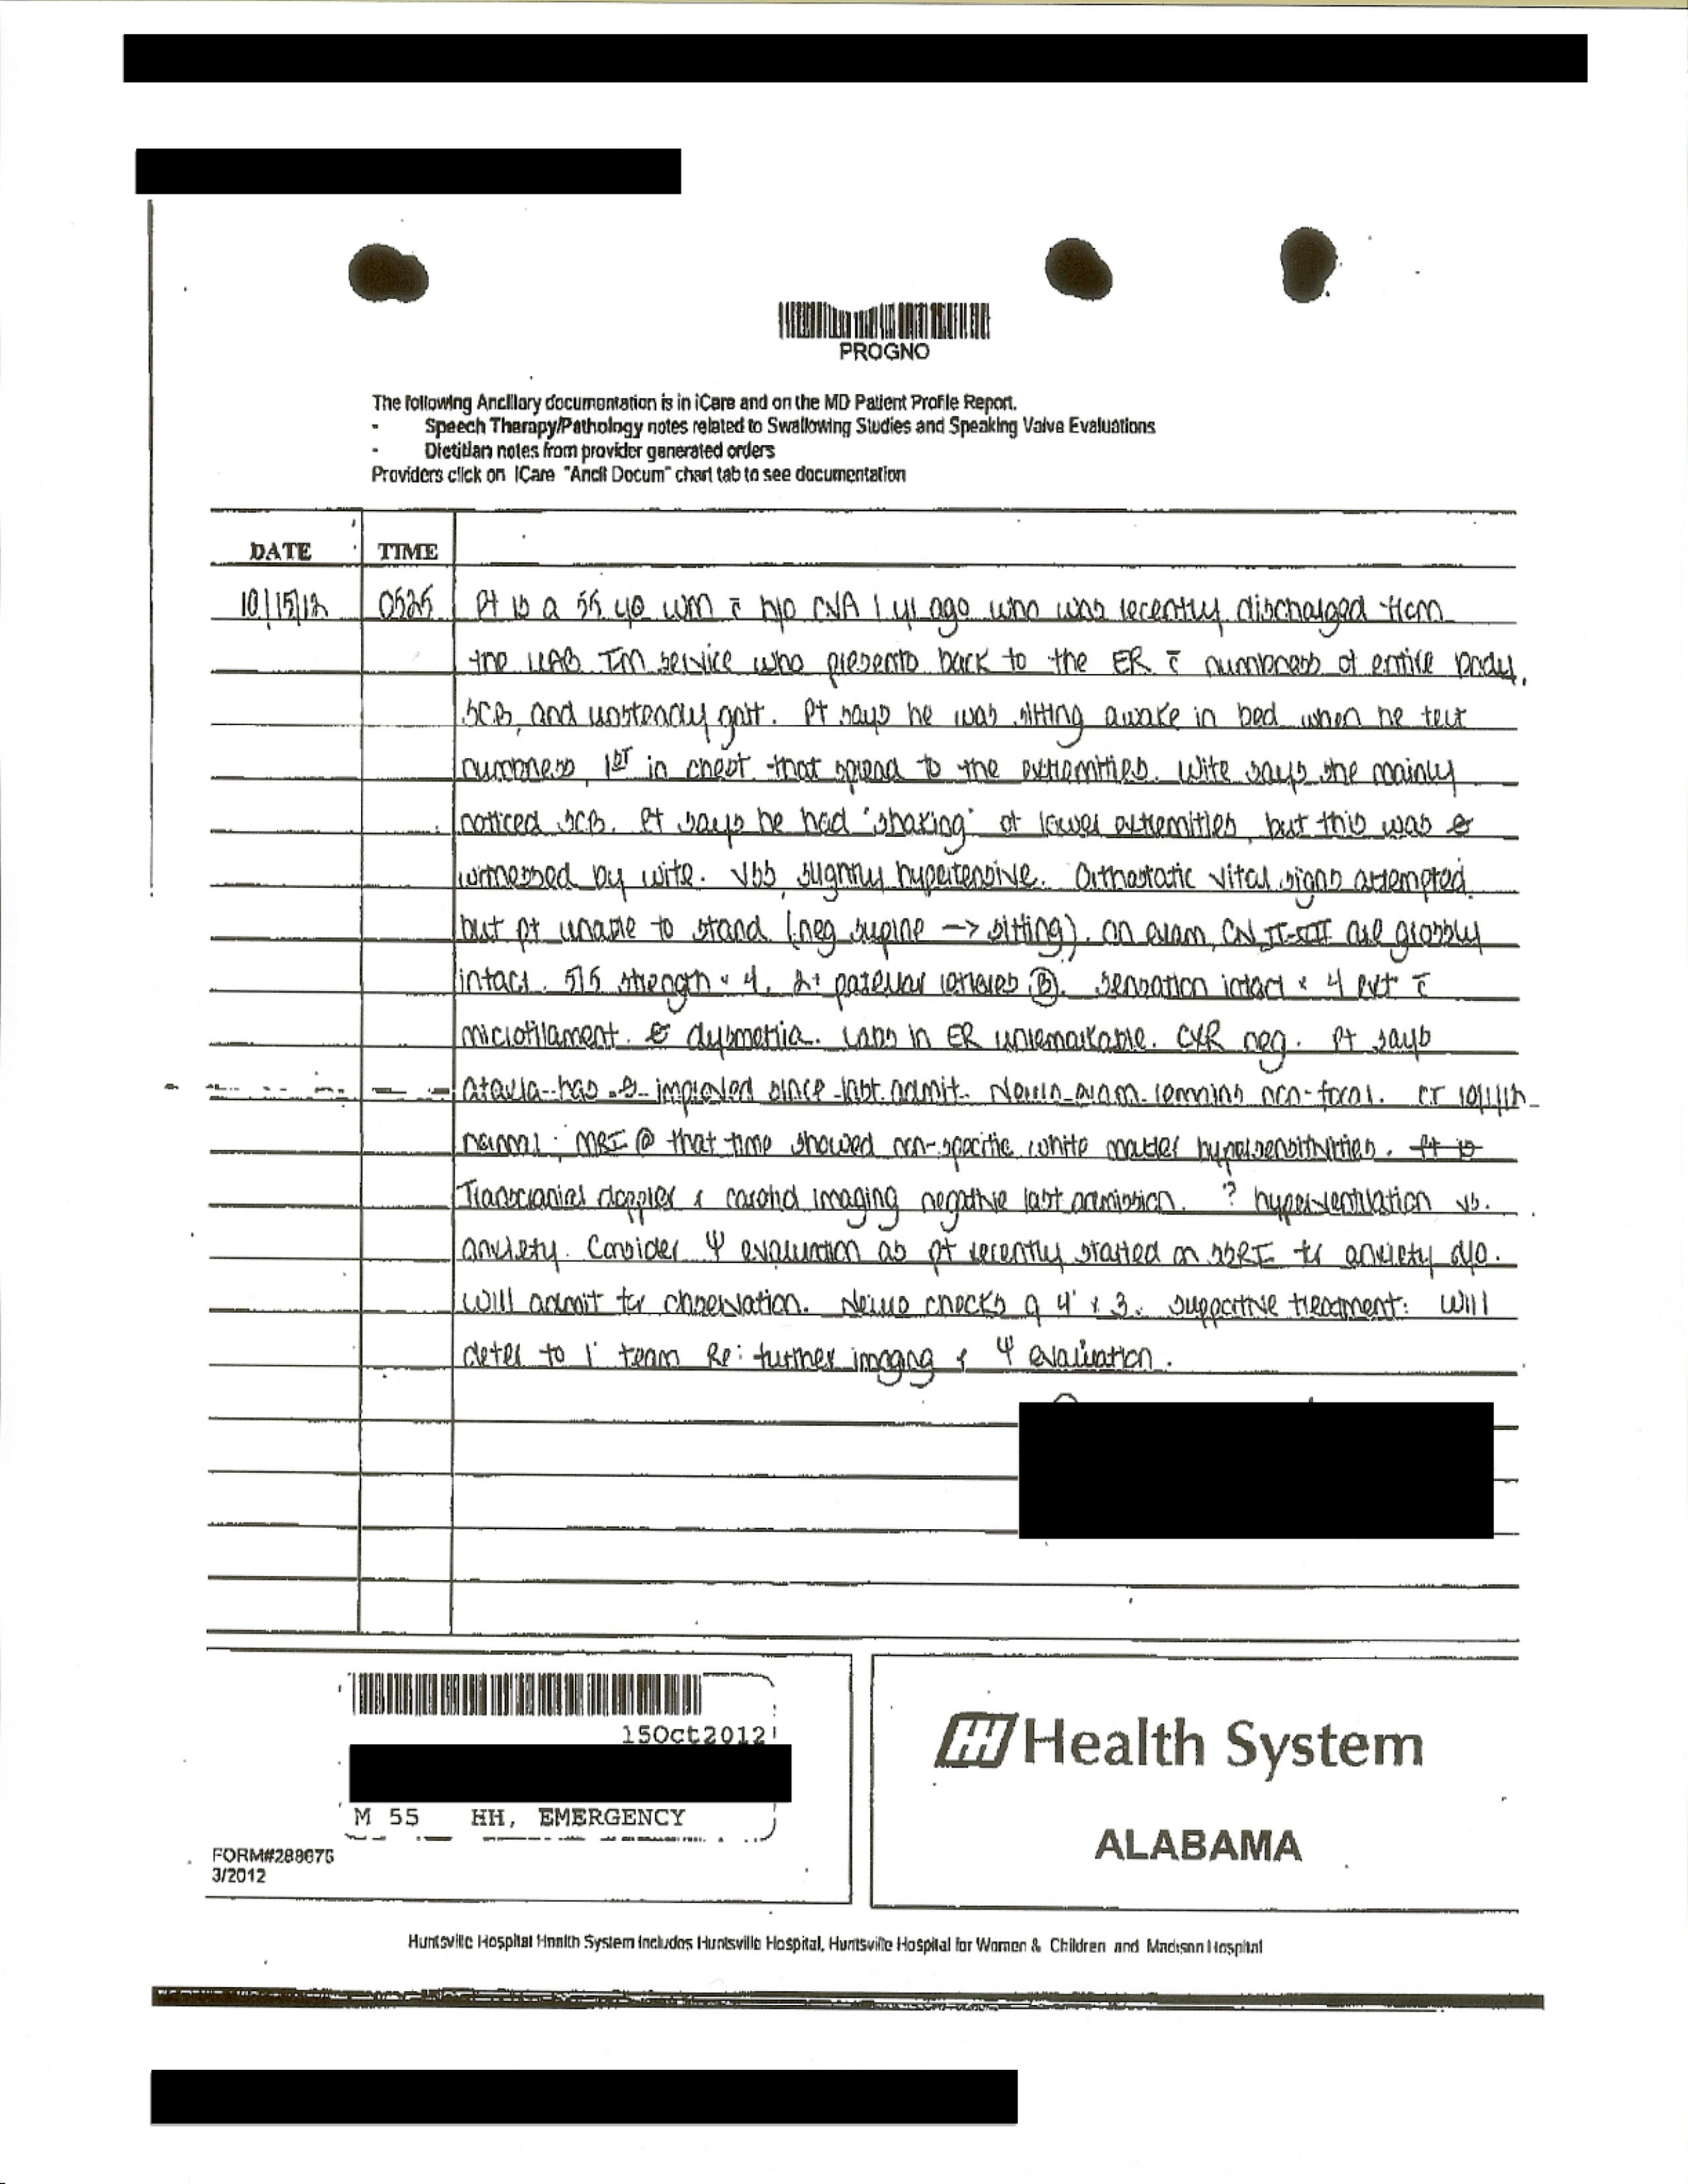 PROGNO
The following Ancillary documentation is in iCare and on the MD Patient Profile Report.
- Speech Therapy/Pathology notes related to Swallowing Studies and Speaking Valve Evaluations
- Dietitian notes from provider generated orders
Providers click on iCare "Ancil Docum" chart tab to see documentation
DATE TIME
10/15/12 0525 Pt is a 55 yo wm c̄ h/o CVA 1 yr ago who was recently discharged from
the UAB IM service who presents back to the ER c̄ numbness of entire body,
SOB, and unsteady gait. Pt says he was sitting awake in bed when he felt
numbness, 1st in chest that spread to the extremities. Wife says she mainly
noticed SOB. Pt says he had "shaking" of lower extremities, but this was ∅
witnessed by wife. VSS, slightly hypertensive. Orthostatic vital signs attempted
but pt unable to stand (neg supine -> sitting). On exam, CN II-XII are grossly
intact. 5/5 strength x 4. 2+ patellar reflexes Ⓑ. Sensation intact x 4 ext c̄
microfilament. ∅ dysmetria. Labs in ER unremarkable. CXR neg. Pt says
ataxia has ∅ improved since last admit. Neuro exam remains non-focal. CT 10/1/12
normal; MRI @ that time showed non-specific white matter hypersensitivities. Pt is
Transcranial doppler & carotid imaging negative last admission. ? hyperventilation vs.
anxiety. Consider Ψ evaluation as pt recently started on SSRI for anxiety d/o.
Will admit for observation. Neuro checks q 4° x 3. Supportive treatment. Will
defer to 1° team Re: further imaging & Ψ evaluation.
15Oct2012
M 55 HH, EMERGENCY
FORM#288676
3/2012
HH Health System
ALABAMA
Huntsville Hospital Health System includes Huntsville Hospital, Huntsville Hospital for Women & Children and Madison Hospital